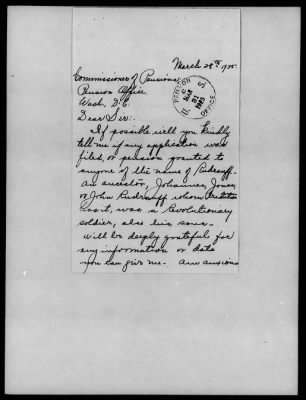 March 28th, 1925
Commissioner of Pensions
Pension Office
Wash, D.C.
PENSION OFFICE
Dear Sir:.
If possible will you kindly
tell me if any application was
filed, or pension granted to
anyone of the name of
An ancestor, Johannes,
or John whom
was a Revolutionary
soldier, also his sons.
Will be deeply grateful for
any information or data
you can give me. Am anxious